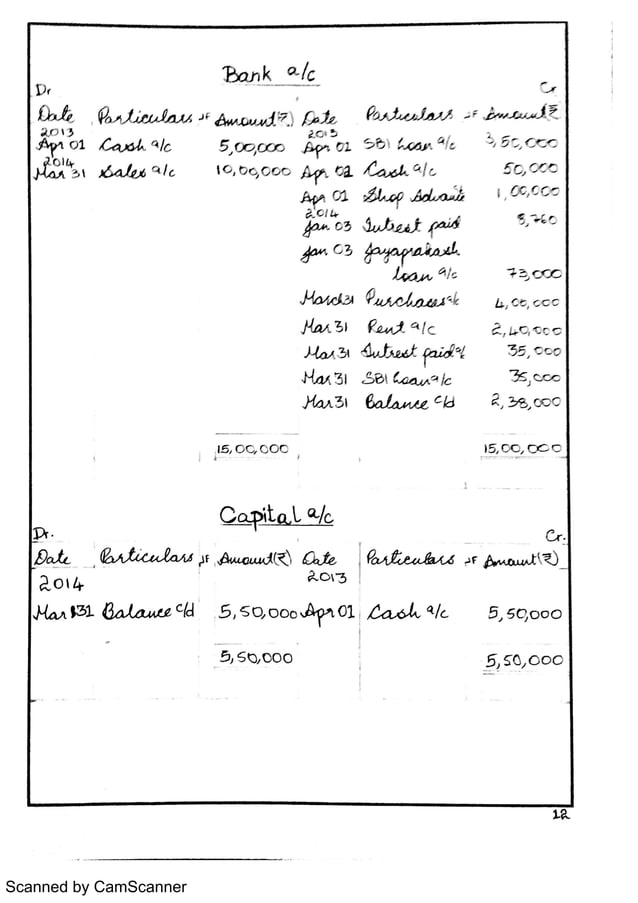 Bank a/c
Dr Cr
Date Particulars JF Amount(₹) Date Particulars JF Amount ₹
2013 2013
Apr 01 Cash a/c 5,00,000 Apr 01 SBI Loan a/c 3,50,000
2014
Mar 31 Sales a/c 10,00,000 Apr 02 Cash a/c 50,000
Apr 01 Shop Advance 1,00,000
2014
Jan 03 Intrest paid 8,760
Jan 03 Jayaprakash
loan a/c 73,000
March31 Purchases a/c 4,00,000
Mar 31 Rent a/c 2,40,000
Mar 31 Intrest paid a/c 35,000
Mar 31 SBI Loan a/c 35,000
Mar 31 Balance c/d 2,38,000
15,00,000 15,00,000
Capital a/c
Dr. Cr.
Date Particulars JF Amount(₹) Date Particulars JF Amount(₹)
2014 2013
Mar 31 Balance c/d 5,50,000 Apr 01 Cash a/c 5,50,000
5,50,000 5,50,000
12
Scanned by CamScanner